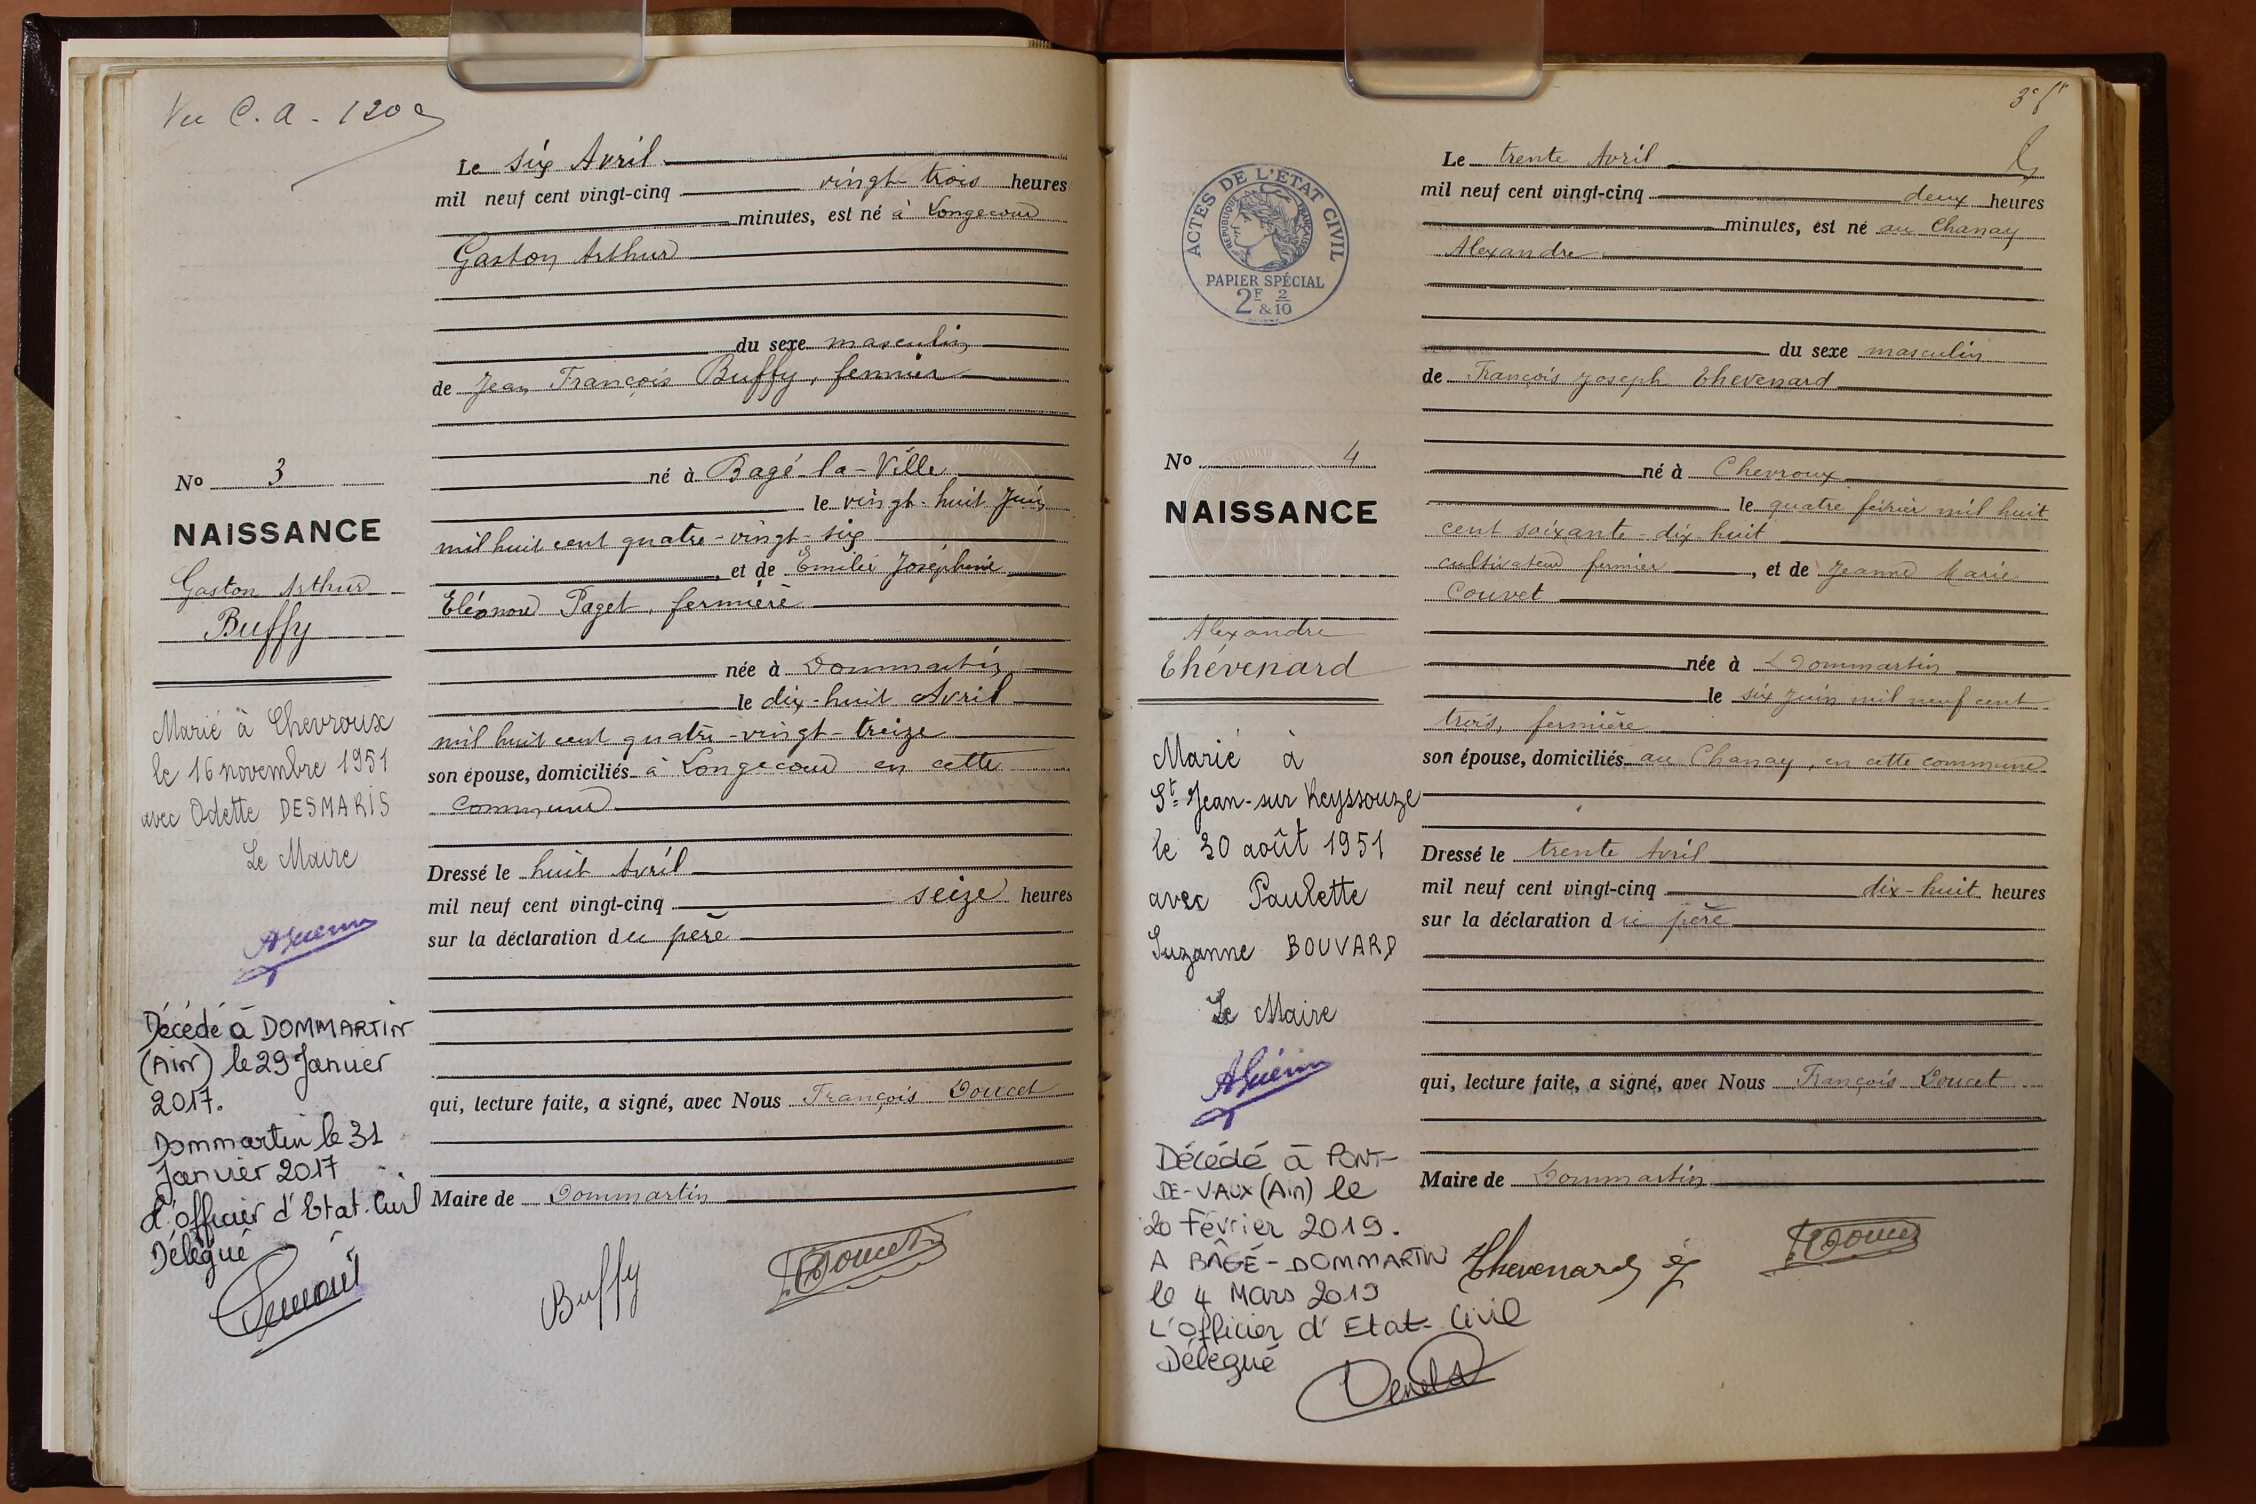 Vu C.A - 120
Le six Avril
mil neuf cent vingt-cinq vingt trois heures
minutes, est né à Longecour
Gaston Arthur
du sexe masculin
de Jean François Buffy, fermier
né à Bagé-la-Ville
le vingt-huit Juin
mil huit cent quatre-vingt-six
, et de Emilie Joséphine
Eléonore Paget, fermière
née à Dommartin
le dix-huit Avril
mil huit cent quatre-vingt-treize
son épouse, domiciliés à Longecour en cette
commune
Dressé le huit Avril
mil neuf cent vingt-cinq seize heures
sur la déclaration du père
qui, lecture faite, a signé, avec Nous François Doucet
Maire de Dommartin
Buffy
F. Doucet
No 3
NAISSANCE
Gaston Arthur
Buffy
Marié à Chevroux
le 16 novembre 1951
avec Odette DESMARIS
Le Maire
AGuérin
Décédé à DOMMARTIN
(Ain) le 29 Janvier
2017.
Dommartin le 31
Janvier 2017
L'officier d'Etat-Civil
Délégué
3e ft
ACTES DE L'ÉTAT CIVIL
RÉPUBLIQUE FRANÇAISE
PAPIER SPÉCIAL
2F & 2/10
Le trente Avril
mil neuf cent vingt-cinq deux heures
minutes, est né au Chanay
Alexandre
du sexe masculin
de François Joseph Thevenard
né à Chevroux
le quatre février mil huit
cent soixante-dix-huit
cultivateur fermier, et de Jeanne Marie
Couvet
née à Dommartin
le six Juin mil neuf cent
trois, fermière
son épouse, domiciliés au Chanay, en cette commune
Dressé le trente Avril
mil neuf cent vingt-cinq dix-huit heures
sur la déclaration du père
qui, lecture faite, a signé, avec Nous François Doucet
Maire de Dommartin
Thevenard
F. Doucet
No 4
NAISSANCE
Alexandre
Thévenard
Marié à
St-Jean-sur Reyssouze
le 30 août 1951
avec Paulette
Suzanne BOUVARD
Le Maire
AGuérin
Décédé à PONT-
DE-VAUX (Ain) le
20 Février 2019.
A BÂGÉ-DOMMARTIN
le 4 Mars 2019
L'Officier d'Etat-Civil
Délégué